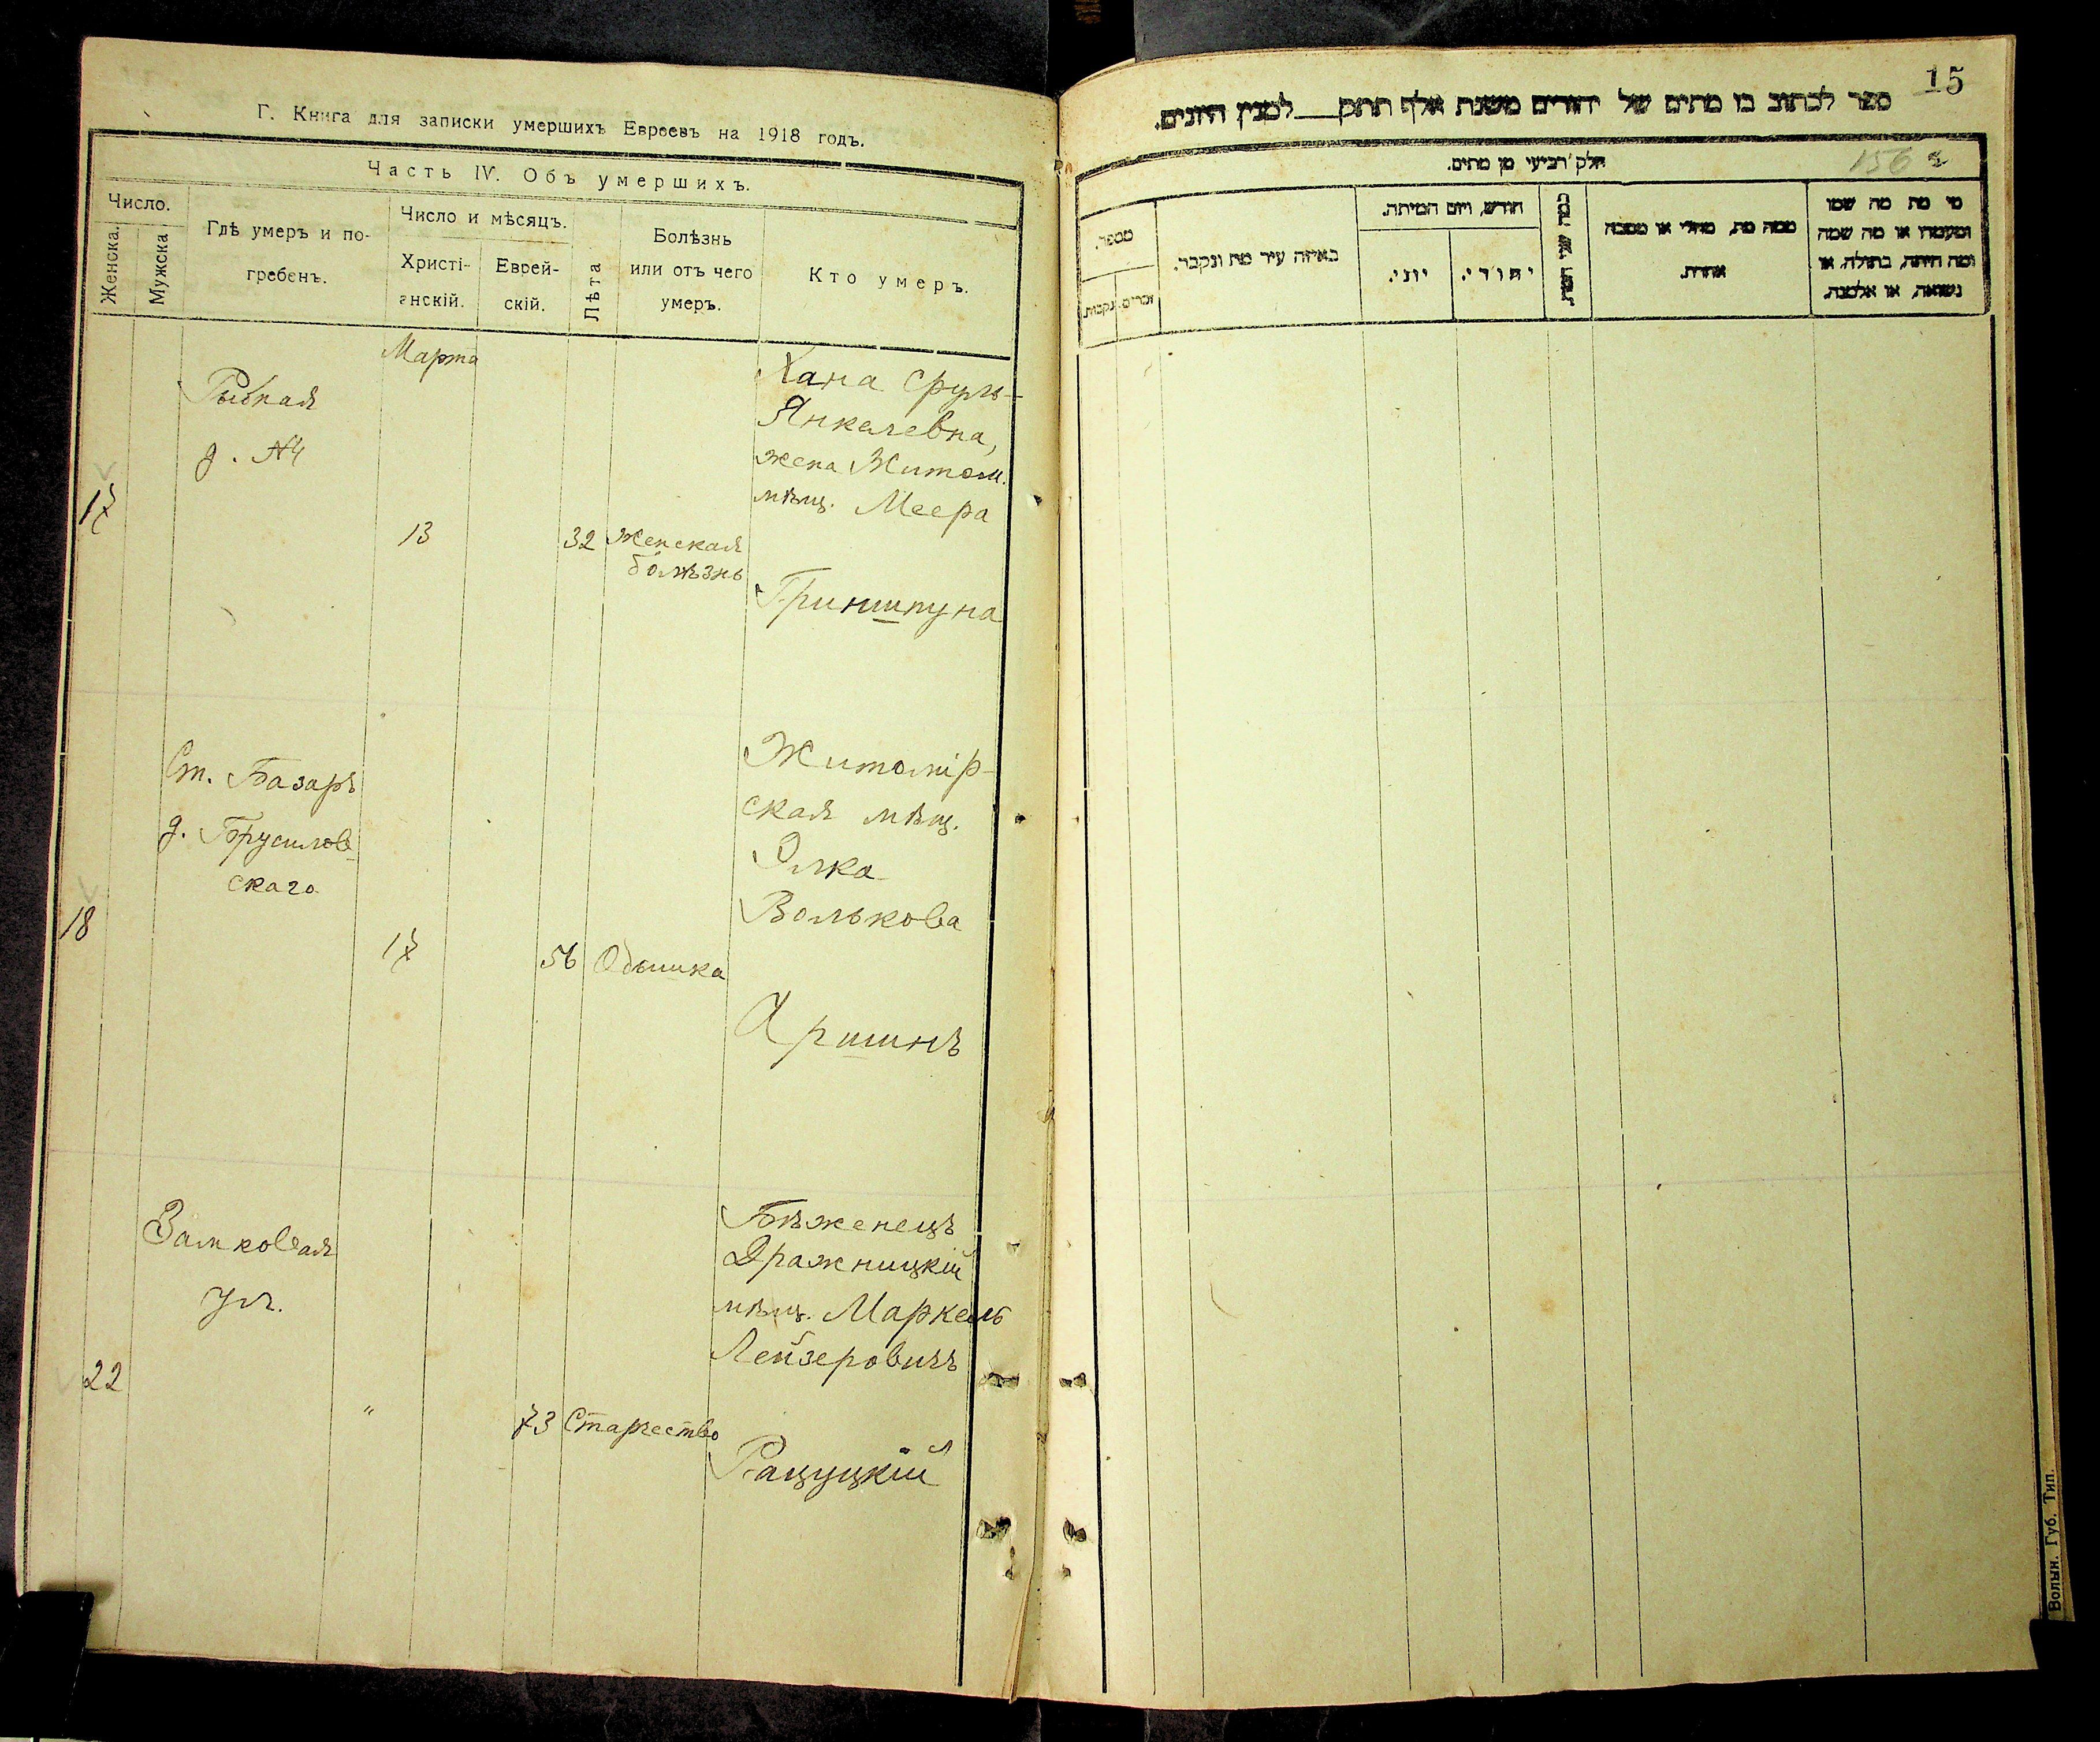 Г. Книга для записки умершихъ Евреевъ на 1918 годъ.
Часть IV. Объ умершихъ.
Число.
Женска.
Мужска.
Гдѣ умеръ и по-
гребенъ.
Число и мѣсяцъ.
Христі-
анскій.
Еврей-
скій.
Лѣта
Болѣзнь
или отъ чего
умеръ.
Кто умеръ.
Марта
17
Рыбная
д. №4
13
32
Женская
болѣзнь
Хана Сруль-
Янкелевна,
жена Житом.
мѣщ. Меера
Гриншпуна
18
Ст. Базаръ
д. Брусилов-
скаго
17
56
Одышка
Житомір-
ская мѣщ.
Элка
Волькова
Аршинъ
22
Замковая
ул.
"
73
Старчество
Бѣженецъ
Дражницкій
мѣщ. Маркель
Лейзеровичъ
Рацуцкій
15
ספר לכתוב בו מתים של יהודים משנת אלף תתקן למנין היונים.
156
חלק רביעי מן מתים.
מספר.
נקבות.
זכרים.
באיזה עיר מת ונקבר.
חודש, ויום המיתה.
יוני.
יהודי.
כמה שני המת.
ממה מת, מחלי או מסבה
אחרת.
מי מת מה שמו
ומעמדו או מה שמה
ומה היתה, בתולה, או
נשואה, או אלמנה.
Волын. Губ. Тип.